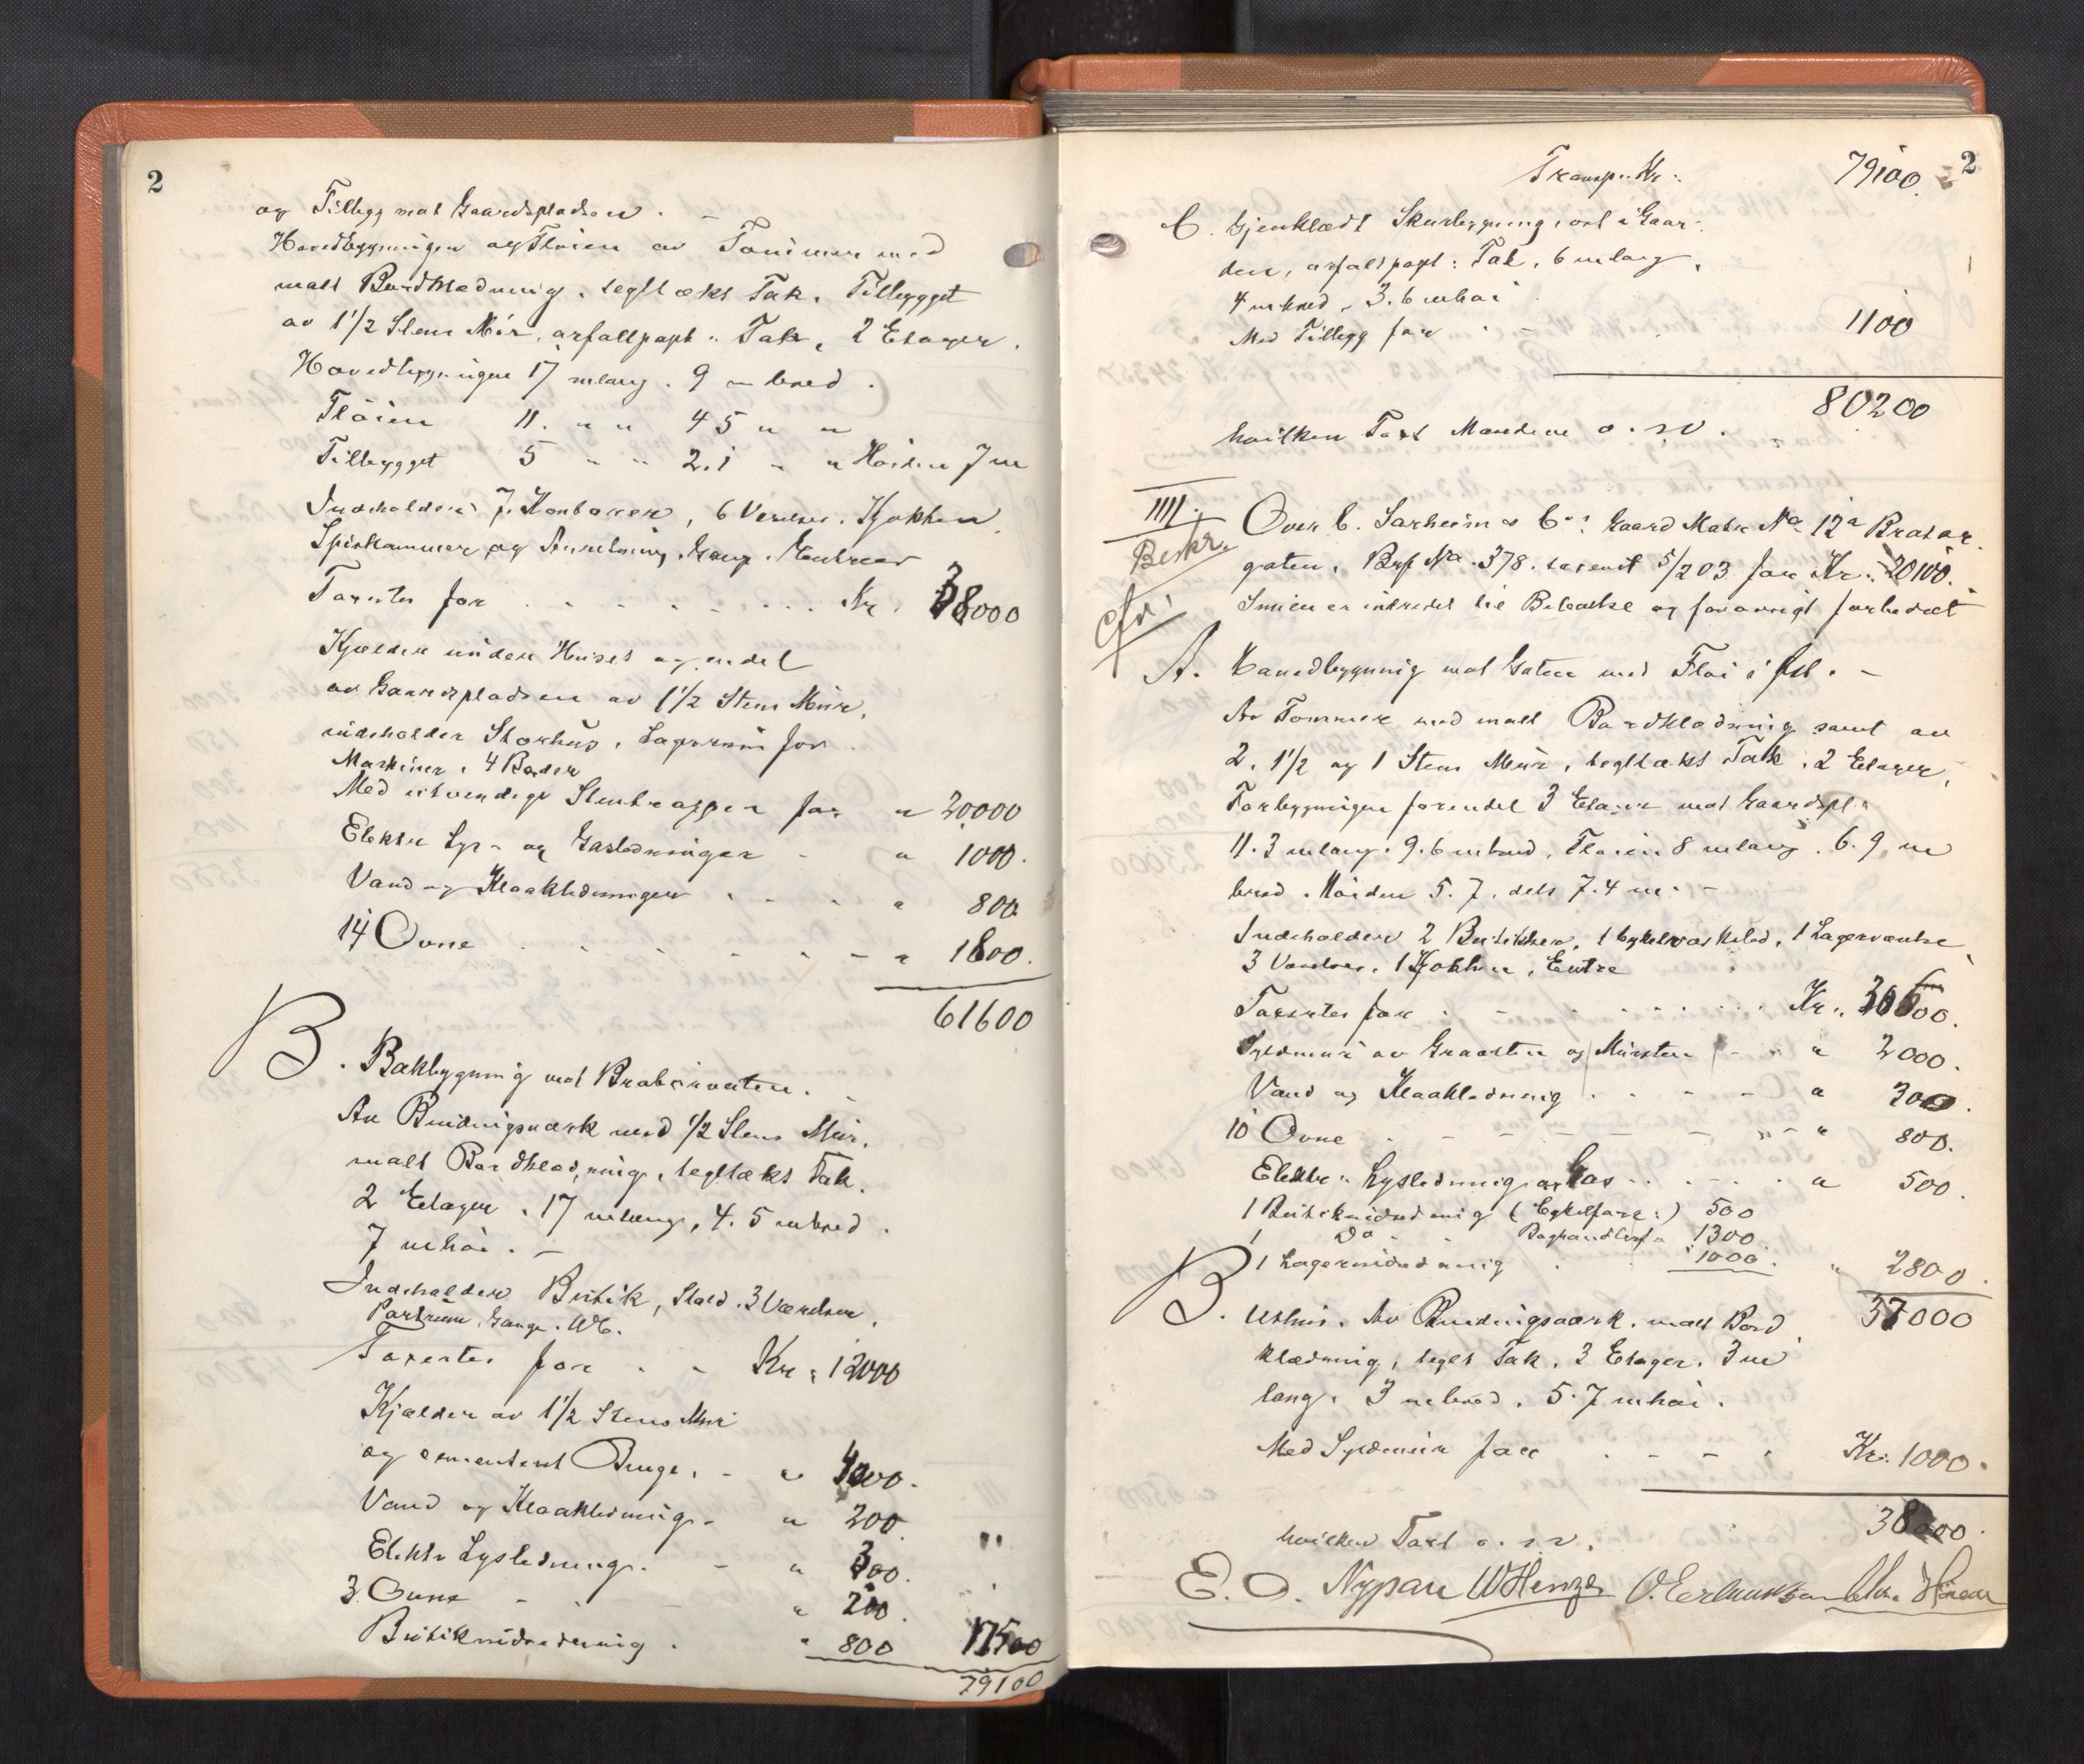 2
og Tillegg mot Gaardspladsen. -
Hovedbygningen og Fløien av Tømmer med
malt Bordklædning, teglt ækt Tak. Tilbygget
av 1 1/2 Stens Mur, asfaltpapt: Tak, 2 Etager.
Hovedbygningen 17 m lang. 9 m bred.
Fløien 11. " " 4 5 " "
Tilbygget 5 " " 2.1 " " Høiden 7 m
Indeholder 7 Kontorer, 6 Værelser. Kjøkken
Spiskammer og Anretning, Gang. Entreer
Taxertes for . . . . . . . Kr. 38000
Kjælder under Huset og endel
av Gaardspladsen av 1 1/2 Stens Mur,
indeholder Storhus, Lagerrum for
Maskiner, 4 Boder
Med utvendige Stentrapper for " 20000
Elektr Lys- og Gasledninger - " 1000.
Vand og Kloakledninger . - . " 800
14 Ovne . . . . . - - " 1800.
61600
B. Bakbygning mot Bratørveiten. -
Av Bindingsværk med 1/2 Stens Mur,
malt Bordklædning, teglt ækt Tak.
2 Etager. 17 m lang, 4.5 m bred.
7 m høi. -
Indeholder Butik, Stald. 3 Værelser,
Portrum, Gange. WC.
Taxertes for . . - Kr. 12000
Kjælder av 1 1/2 Stens Mur
og cementert Binge. - " 4000.
Vand og Kloakledning. - " 200
Elektr Lysledning. - " 300.
3 Ovne - . - " 200.
Butikindredning . " 800 17500
79100
2
Transp. Kr: 79100.
C. Gjenklædt Skurbygning, ost i Gaar-
den, asfaltpapt: Tak, 6 m lang,
4 m bred, 3.6 m høi
Med Tillegg for . - . 1100
80200
hvilken Taxt Mændene o.s.v.
IIII.
Beskr.
cfr.
Over C. Sarheim & Co: Gaard Matr No 12a Bratør-
gaten, Brf No. 378. taxeret 5/2 03 for Kr. 20100.
Smien er indredet til Beboelse og forøvrigt forbedret
A. Hovedbygning mot Gaten med Fløi i Øst. -
Av Tømmer med malt Bordklædning samt av
2, 1 1/2 og 1 Stens Mur, teglt ækt Tak. 2 Etager,
Forbygningen forendel 3 Etager mot Gaardspl.
11.3 m lang. 9.6 m bred, Fløien 8 m lang. 6.9 m
bred. Høiden 5.7, dels 7.4 m. -
Indeholder 2 Butikker, 1 Cykelværksted, 1 Lagerværelse
3 Værelser. 1 Kjøkken, Entre
Taxertes for . - . . . . . Kr. 30600.
Syldmur av Graasten og Mursten - - " " 2000.
Vand og Kloakledning . . - - " 300.
10 Ovne . - - - - - " - " 800.
Elektr: Lysledning og Gas . . - . . " 500.
1 Butikindredning (Cykelforr:) 500
1 Do - . Boghandlerf " 1300
1 Lagerindredning . . 1000. " 2800.
37000
B. Uthus. Av Bindingsværk, malt Bord
klædning, teglt Tak. 2 Etager. 3 m
lang. 3 m bred. 5.7 m høi.
Med Syldmur for . - - . Kr: 1000.
38000.
hvilken Taxt o.s.v.
E. O. Nypan W Henzes O. Erlandsen